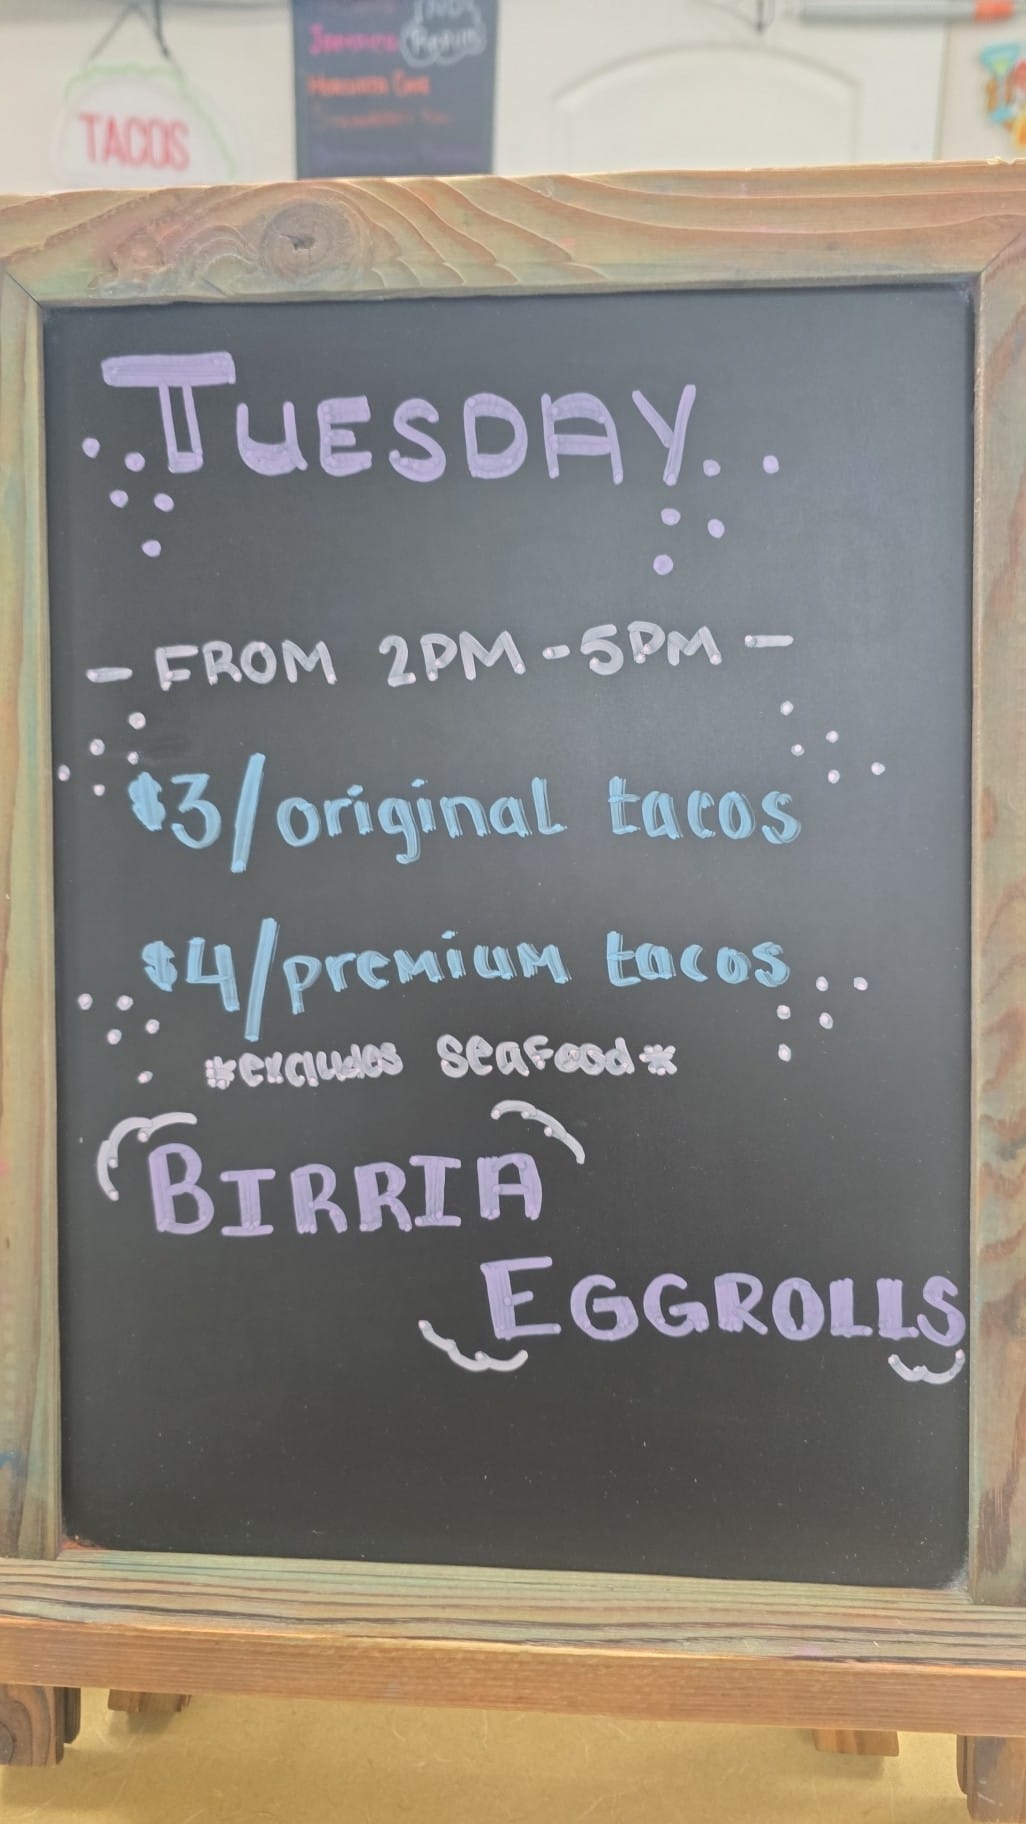 TACOS
TUESDAY
- FROM 2PM - 5PM -
$3/original tacos
$4/premium tacos
*excludes seafood*
BIRRIA
EGGROLLS